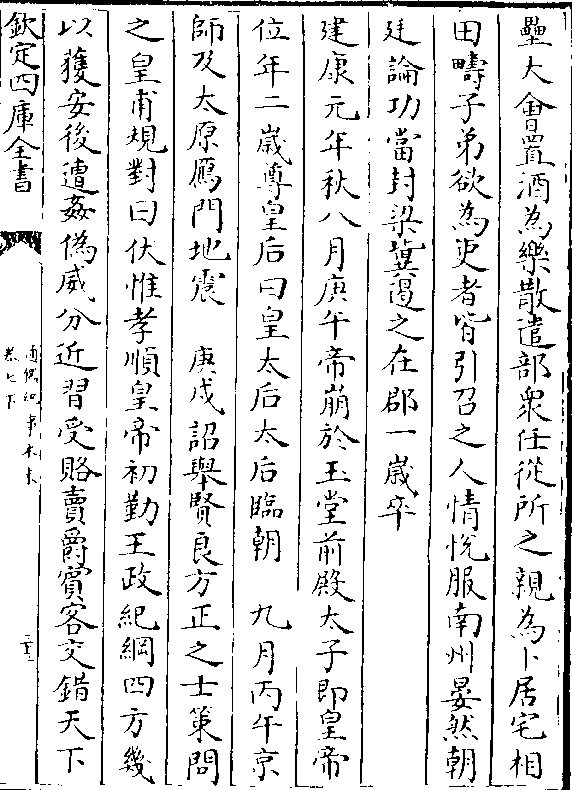 壘大會置酒為樂散遣部衆任從所之親為卜居宅相
田疇子弟欲為吏者皆引召之人情悅服南州晏然朝
廷論功當封梁冀遏之在郡一歲卒
建康元年秋八月庚午帝崩於玉堂前殿太子即皇帝
位年二歲尊皇后曰皇太后太后臨朝　九月丙午京
師及太原鴈門地震　庚戌詔舉賢良方正之士策問
之皇甫規對曰伏惟孝順皇帝初勤王政紀綱四方幾
以獲安後遭姦偽威分近習受賂賣爵賓客交錯天下
欽定四庫全書
通鑑紀事本末
卷七下